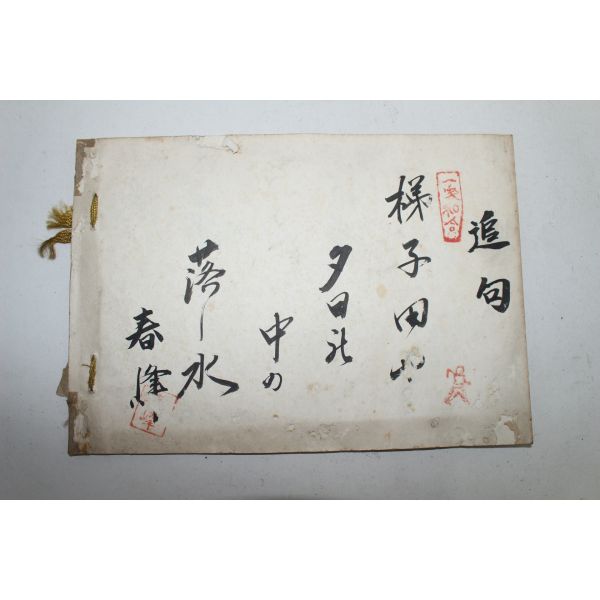 追句
一家和合
梯子田や
夕日の
中の
落し水
春峰